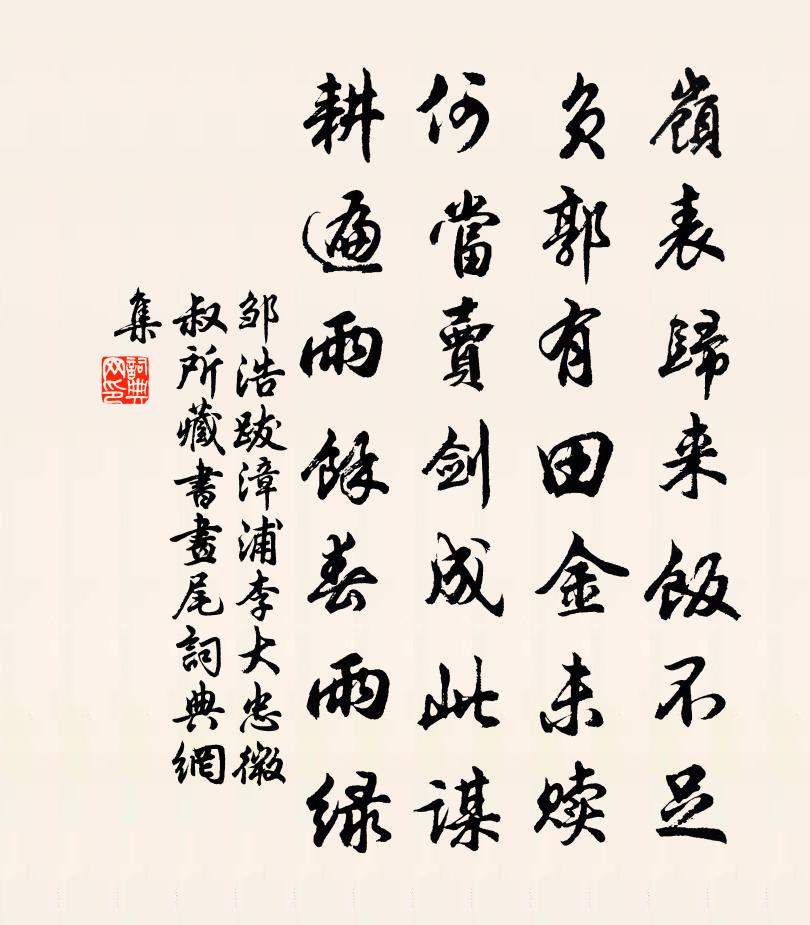 嶺表歸来飯不足
負郭有田金未贖
何當賣剑成此謀
耕遍雨餘春雨緑
邹浩跋漳浦李大忠微
叔所藏書畫尾詞典網
集
詞典
网印